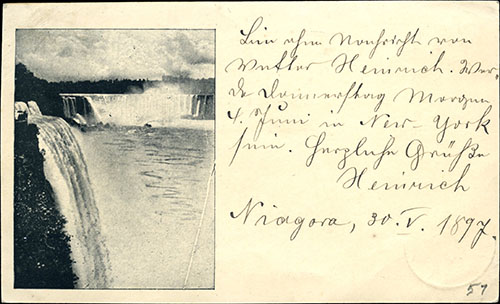 Bin ohne Nachricht von
Vetter Heinrich. Werde
Donnerstag Morgen
4. Juni in New-York
sein. Herzliche Grüße
Heinrich
Niagara, 30. V. 1897.
57